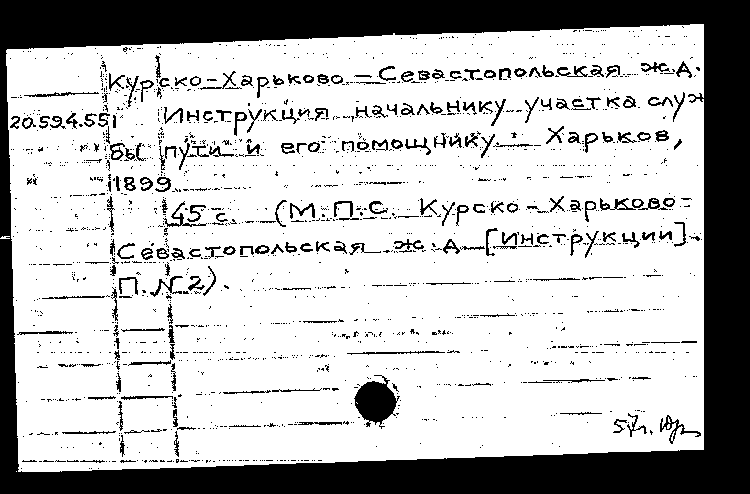 Курско-Харьково-Севастопольская ж.д.
20.594.551 Инструкция начальнику участка служ
бы пути и его помощнику. Харьков,
1899
45 с. (М.П.С. Курско-Харьково-
Севастопольская ж.д. [Инструкции].
П. N2).
57г.